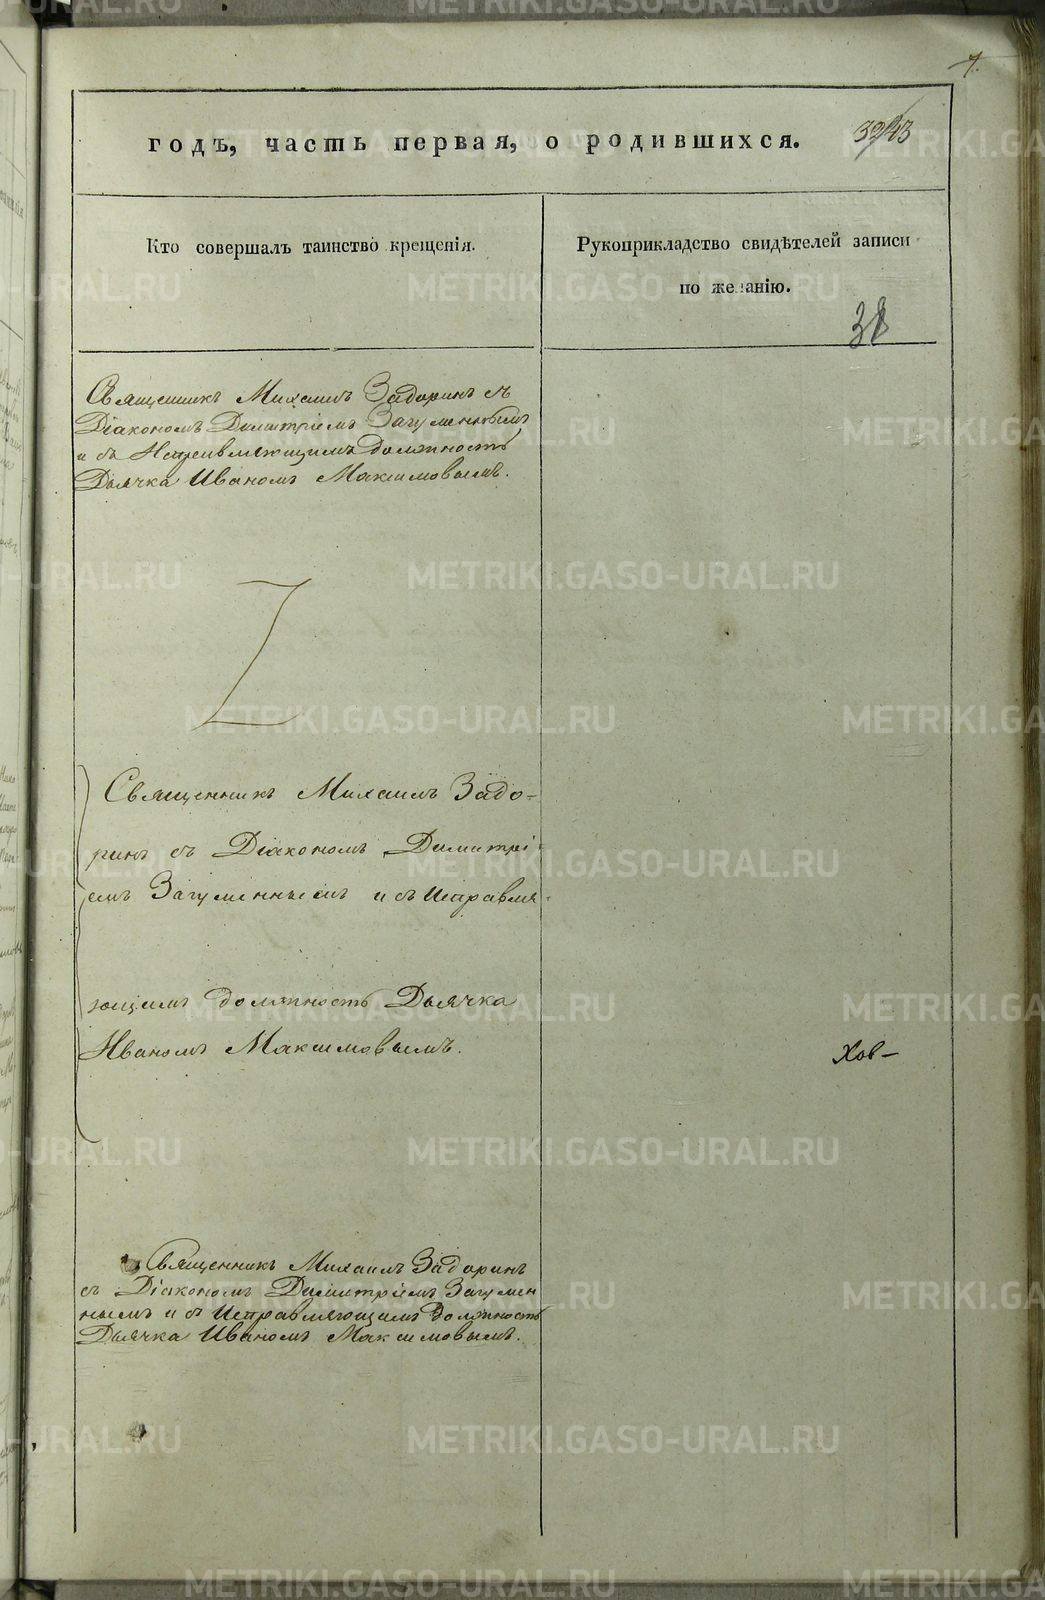 7.
годъ, часть первая, о родившихся.
43
Кто совершалъ таинство крещенія.
Рукоприкладство свидѣтелей записи
по желанію.
38
Священникъ Михаилъ Задоринъ съ
Діакономъ Димитріемъ Загуменнымъ
и съ Исправляющимъ должность
Дьячка Иваномъ Максимовымъ.
Священникъ Михаилъ Задо-
ринъ съ Діакономъ Димитрі-
емъ Загуменнымъ и съ Исправля-
ющимъ должность Дьячка
Иваномъ Максимовымъ.
Священникъ Михаилъ Задоринъ
съ Діакономъ Димитріемъ Загумен
нымъ и съ Исправляющимъ должность
Дьячка Иваномъ Максимовымъ.
METRIKI.GASO-URAL.RU